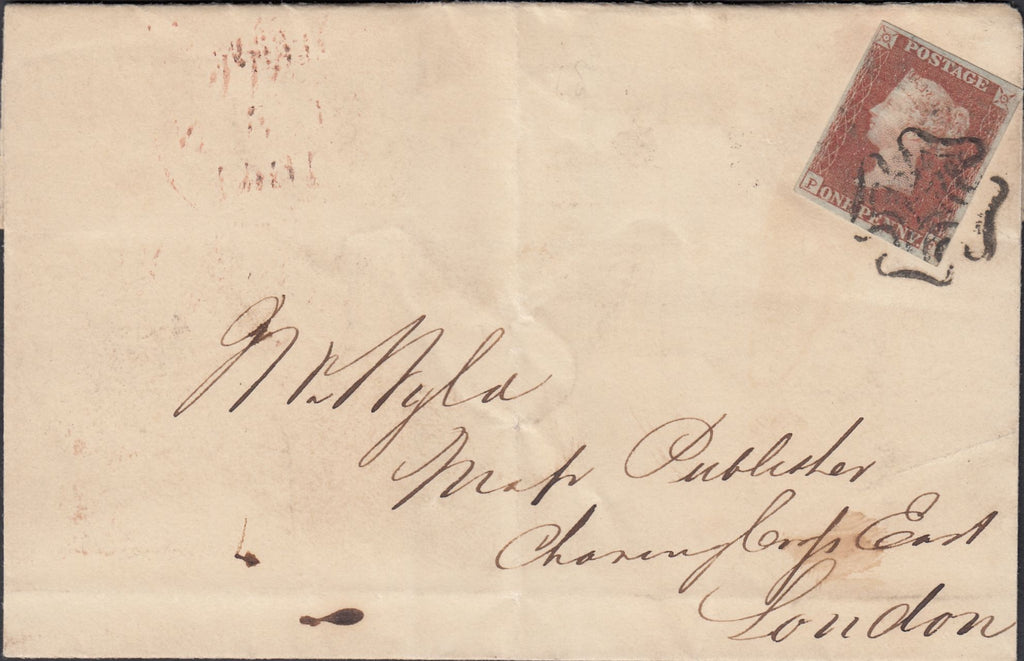 POSTAGE
P ONE PENNY
Mr Wyld
Map Publisher
Charing Cross East
London